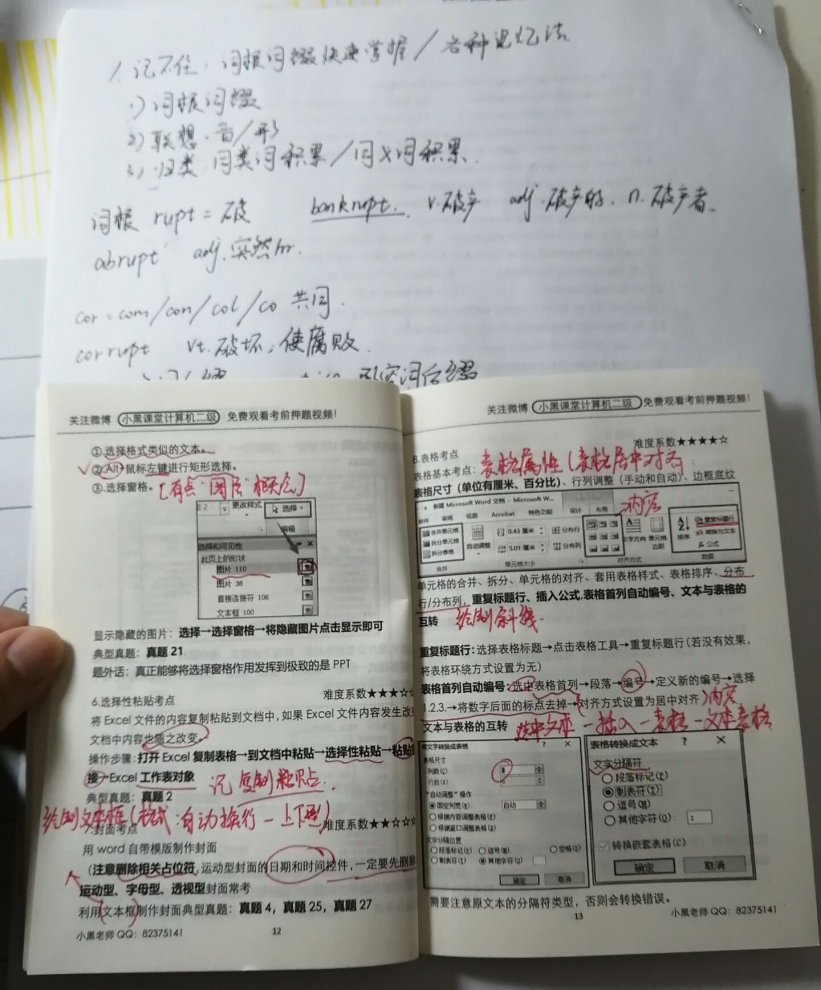 1. 记不住：词根词缀快速掌握/各种记忆法
1) 词根词缀
2) 联想：音/形
3) 归类：同类词积累/同义词积累.
词根 rupt = 破 bankrupt. v.破产 adj.破产的. n.破产者.
abrupt adj.突然的.
cor = com/con/col/co 共同.
corrupt vt.破坏，使腐败.
关注微博 小黑课堂计算机二级 免费观看考前押题视频！
①.选择格式类似的文本。
②.Alt+鼠标左键进行矩形选择。
③.选择窗格。[有点“图层”概念]
更改样式 选择
编辑
选择和可见性
此页上的形状
图片 110
图片 38
直接连接符 106
文本框 100
显示隐藏的图片：选择→选择窗格→将隐藏图片点击显示即可
典型真题：真题 21
题外话：真正能够将选择窗格作用发挥到极致的是 PPT
6.选择性粘贴考点 难度系数★★★☆
将 Excel 文件的内容复制粘贴到文档中，如果 Excel 文件内容发生改变
文档中内容也随之改变。
操作步骤：打开 Excel 复制表格→到文档中粘贴→选择性粘贴→粘贴链
接→Excel 工作表对象 记 复制粘贴点.
典型真题：真题 2
绘制文本框（格式：自动换行—上下型）
7.封面考点 难度系数★★☆☆
用 word 自带模版制作封面
（注意删除相关占位符，运动型封面的日期和时间控件，一定要先删除
运动型、字母型、透视型封面常考
利用文本框制作封面典型真题：真题 4，真题 25，真题 27
小黑老师 QQ：82375141
12
关注微博 小黑课堂计算机二级 免费观看考前押题视频！
8.表格考点 难度系数★★★★☆
表格基本考点：表格属性（表格居中对齐
表格尺寸（单位有厘米、百分比）、行列调整（手动和自动）、边框底纹
新建 Microsoft Word 文档 - Microsoft W... 内容
邮件 审阅 视图 Acrobat 特色功能 设计 布局
合并单元格
拆分单元格
拆分表格
自动调整
0.43 厘米 分布行
5.01 厘米 分布列
文字方向 单元格边距
排序
重复标题行
转换为文本
公式
合并 单元格大小 对齐方式 数据
单元格的合并、拆分、单元格的对齐、套用表格样式、表格排序、分布
行/分布列，重复标题行、插入公式，表格首列自动编号、文本与表格的
互转 绘制斜线.
重复标题行：选择表格标题→点击表格工具→重复标题行（若没有效果，
将表格环绕方式设置为无）
表格首列自动编号：选中表格首列→段落→编号→定义新的编号→选择
1.2.3.→将数字后面的标点去掉→对齐方式设置为居中对齐）内容
文本与表格的互转 选中文本—插入—表格—文本表格
将文字转换成表格
表格尺寸
列数(C)
行数(R)
“自动调整”操作
固定列宽(W) 自动
根据内容调整表格(F)
根据窗口调整表格(D)
文字分隔位置
段落标记(P) 逗号(M) 空格(S)
制表符(T) 其他字符(O)
确定 取消
表格转换成文本 ? ×
文字分隔符
段落标记(P)
制表符(T)
逗号(M)
其他字符(O)：
转换嵌套表格(C)
确定 取消
需要注意原文本的分隔符类型，否则会转换错误。
13
小黑老师 QQ：82375141